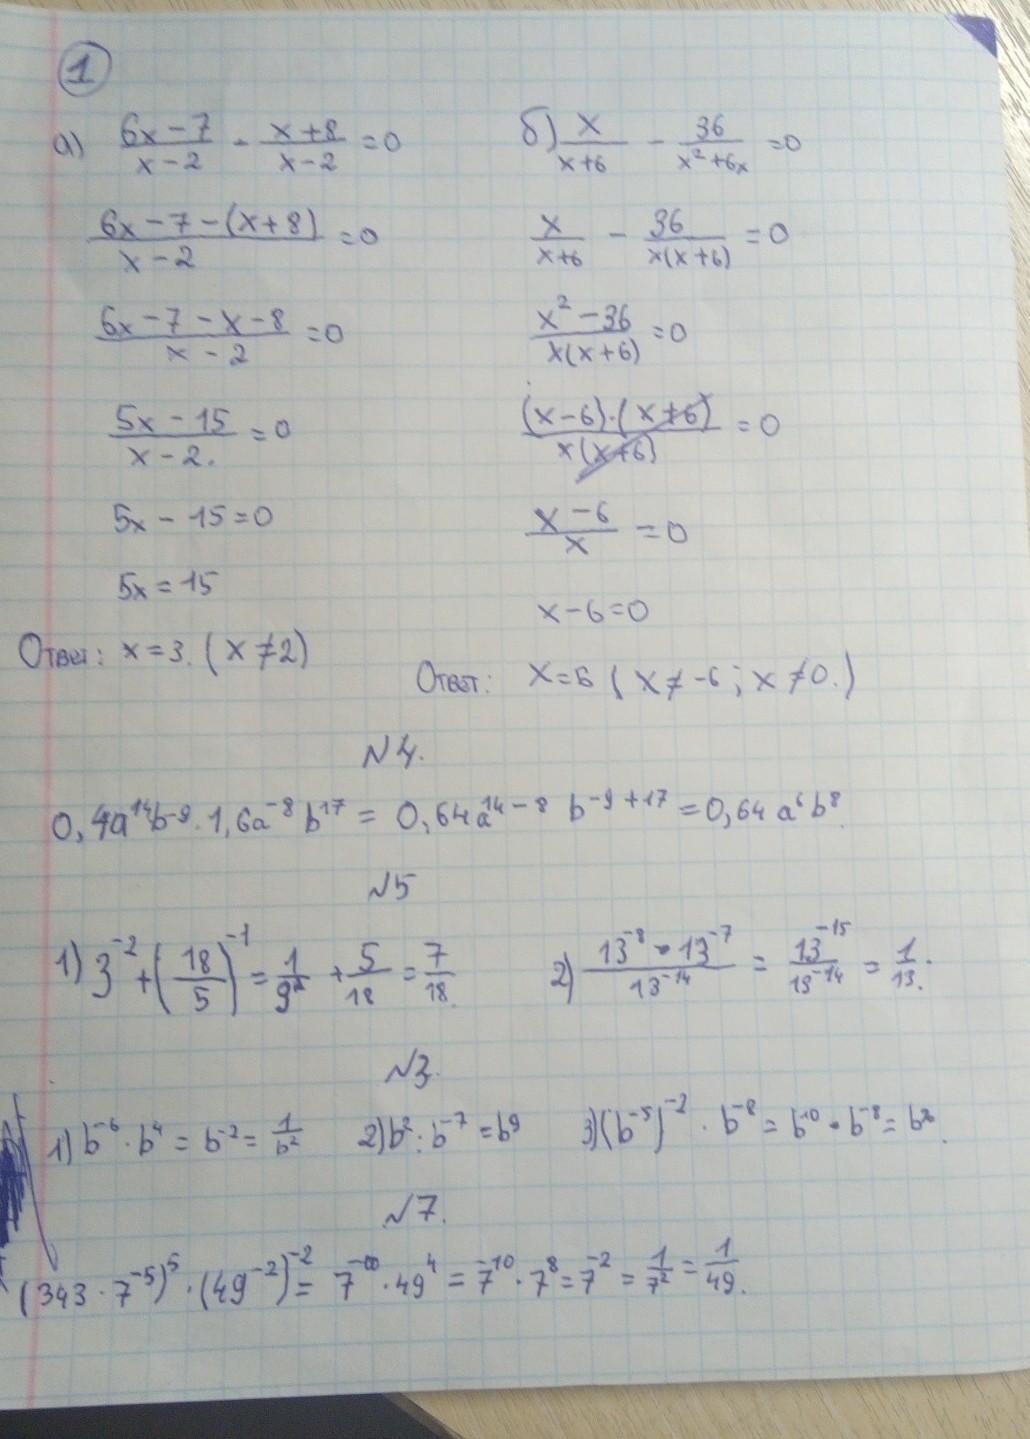 1
а) (6x-7)/(x-2) - (x+8)/(x-2) = 0
(6x-7-(x+8))/(x-2) = 0
(6x-7-x-8)/(x-2) = 0
(5x-15)/(x-2) = 0
5x-15=0
5x=15
Ответ: x=3. (x≠2)
б) x/(x+6) - 36/(x²+6x) = 0
x/(x+6) - 36/(x(x+6)) = 0
(x²-36)/(x(x+6)) = 0
((x-6)·(x+6))/(x(x+6)) = 0
(x-6)/x = 0
x-6=0
Ответ: x=6 (x≠-6; x≠0.)
№4.
0,4a¹⁴b⁻⁹·1,6a⁻⁸b¹⁷ = 0,64a¹⁴⁻⁸ b⁻⁹⁺¹⁷ = 0,64a⁶b⁸.
№5
1) 3⁻² + (18/5)⁻¹ = 1/9 + 5/18 = 7/18.
2) (13⁻⁸·13⁻⁷)/13⁻¹⁴ = 13⁻¹⁵/13⁻¹⁴ = 1/13.
№3.
1) b⁻⁶·b⁴ = b⁻² = 1/b² 2) b²:b⁻⁷ = b⁹ 3) (b⁻⁵)⁻²·b⁻⁸ = b¹⁰·b⁻⁸ = b².
№7.
(343·7⁻⁵)⁵·(49⁻²)⁻² = 7⁻¹⁰·49⁴ = 7⁻¹⁰·7⁸ = 7⁻² = 1/7² = 1/49.